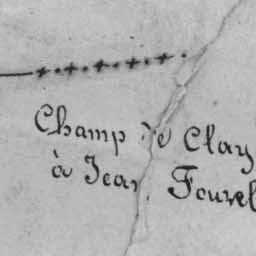 Champ de Clay
à Jean Fourel